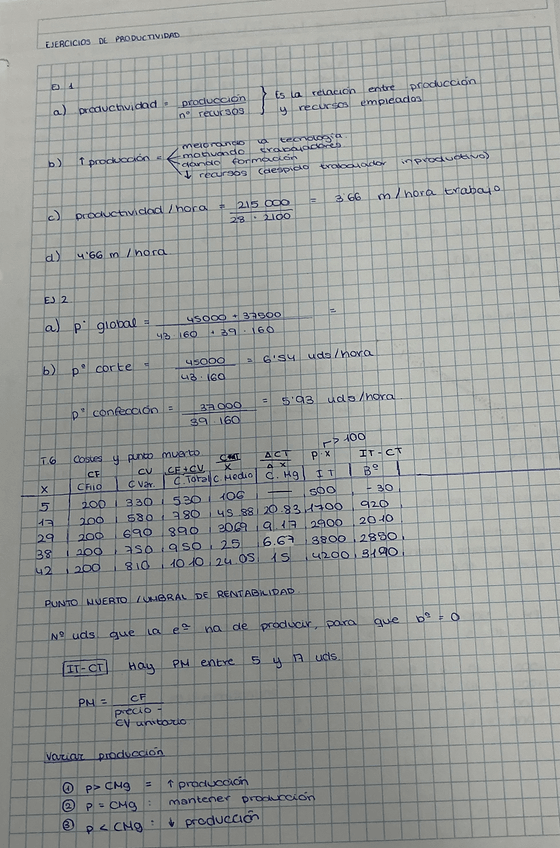 EJERCICIOS DE PRODUCTIVIDAD
EJ 1
a) productividad = producción / nº recursos } Es la relación entre producción y recursos empleados
b) ↑ producción = mejorando la tecnología
motivando trabajadores
dando formación
↓ recursos (despido trabajador improductivo)
c) productividad/hora = 215 000 / 28 · 2100 = 3'66 m/hora trabajo
d) 4'66 m/hora
EJ 2
a) pº global = 45000 + 37500 / 43·160 + 39·160 =
b) pº corte = 45000 / 43·160 = 6'54 uds/hora
pº confección = 37000 / 39·160 = 5'93 uds/hora
T.6 Costes y punto muerto
CF CV CF+CV CMT/X ΔCT/ΔX P·X → 100 IT-CT
X CFijo C Var. C.Total C Medio C.Mg IT Bº
5 200 330 530 106 — 500 -30
17 200 580 780 45.88 20.83 1700 920
29 200 690 890 30.69 9.17 2900 2010
38 200 750 950 25 6.67 3800 2850
42 200 810 1010 24.05 15 4200 3190
PUNTO MUERTO / UMBRAL DE RENTABILIDAD
Nº uds que la eª ha de producir, para que bº = 0
IT-CT Hay PM entre 5 y 17 uds.
PM = CF / precio - CV unitario
Variar producción
① p > CMg = ↑ producción
② p = CMg : mantener producción
③ p < CMg : ↓ producción